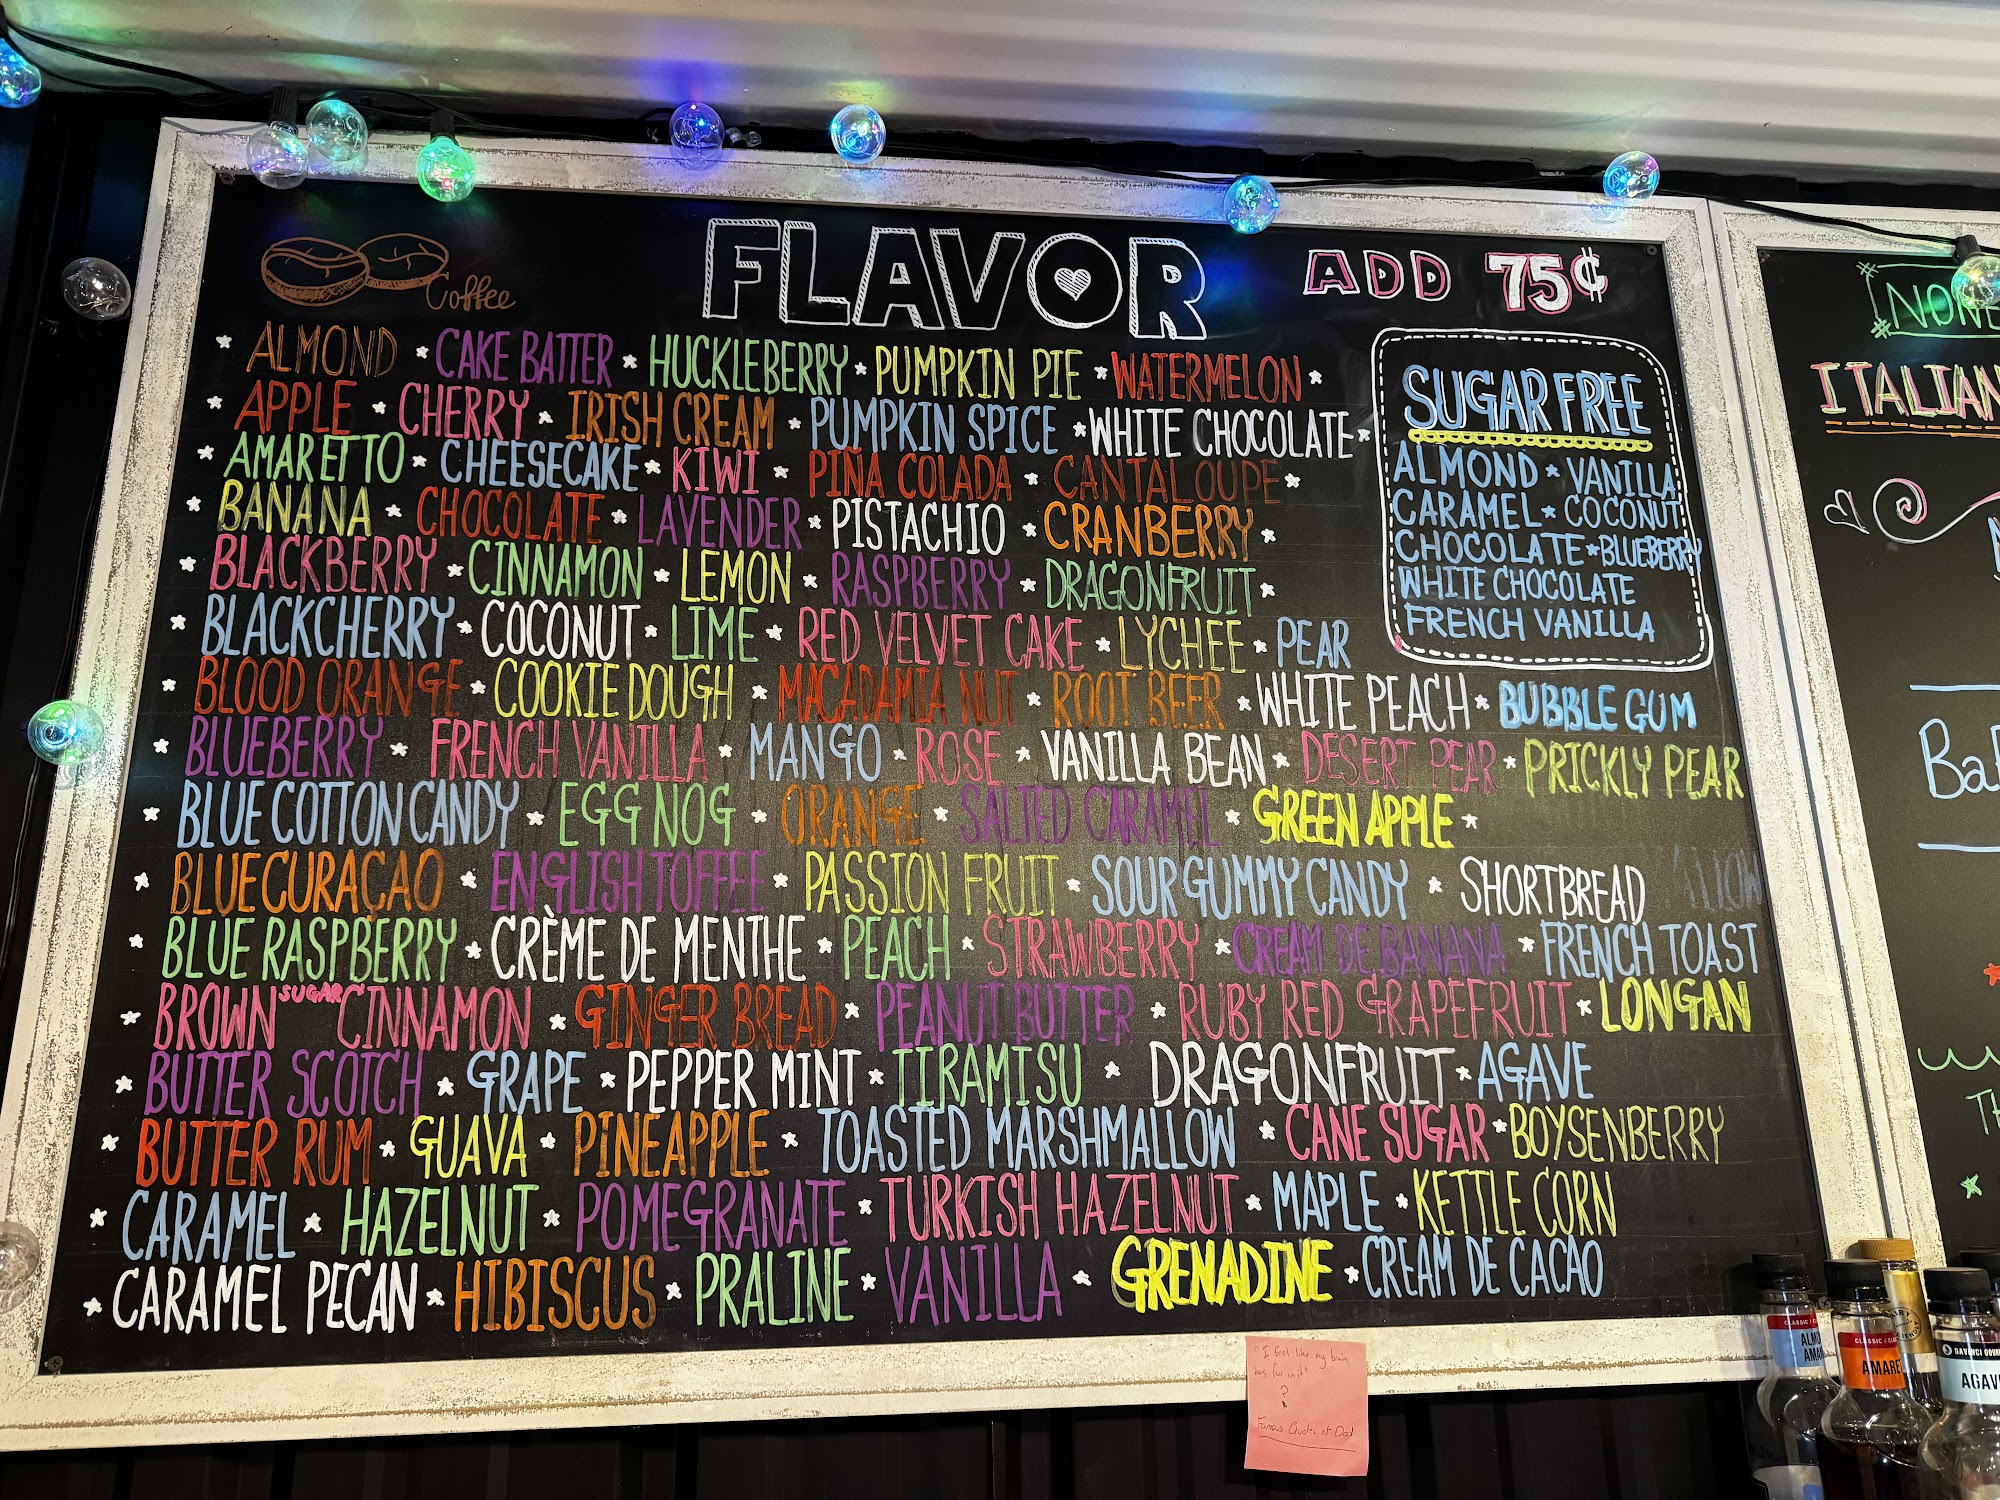 Coffee
FLAVOR
ADD 75¢
* ALMOND * CAKE BATTER * HUCKLEBERRY * PUMPKIN PIE * WATERMELON *
* APPLE * CHERRY * IRISH CREAM * PUMPKIN SPICE * WHITE CHOCOLATE *
* AMARETTO * CHEESECAKE * KIWI * PIÑA COLADA * CANTALOUPE *
* BANANA * CHOCOLATE * LAVENDER * PISTACHIO * CRANBERRY *
* BLACKBERRY * CINNAMON * LEMON * RASPBERRY * DRAGONFRUIT *
* BLACKCHERRY * COCONUT * LIME * RED VELVET CAKE * LYCHEE * PEAR
* BLOOD ORANGE * COOKIE DOUGH * MACADAMIA NUT * ROOT BEER * WHITE PEACH * BUBBLE GUM
* BLUEBERRY * FRENCH VANILLA * MANGO * ROSE * VANILLA BEAN * DESERT PEAR * PRICKLY PEAR
* BLUE COTTON CANDY * EGG NOG * ORANGE * SALTED CARAMEL * GREEN APPLE *
* BLUE CURAÇAO * ENGLISH TOFFEE * PASSION FRUIT * SOUR GUMMY CANDY * SHORTBREAD
* BLUE RASPBERRY * CRÈME DE MENTHE * PEACH * STRAWBERRY * CREAM DE BANANA * FRENCH TOAST
* BROWN SUGAR CINNAMON * GINGER BREAD * PEANUT BUTTER * RUBY RED GRAPEFRUIT * LONGAN
* BUTTER SCOTCH * GRAPE * PEPPER MINT * TIRAMISU * DRAGONFRUIT * AGAVE
* BUTTER RUM * GUAVA * PINEAPPLE * TOASTED MARSHMALLOW * CANE SUGAR * BOYSENBERRY
* CARAMEL * HAZELNUT * POMEGRANATE * TURKISH HAZELNUT * MAPLE * KETTLE CORN
* CARAMEL PECAN * HIBISCUS * PRALINE * VANILLA * GRENADINE * CREAM DE CACAO
SUGAR FREE
ALMOND * VANILLA
CARAMEL * COCONUT
CHOCOLATE * BLUEBERRY
WHITE CHOCOLATE
FRENCH VANILLA
ITALIAN
"I feel like my brain
has fur in it"
?
Famous Quotes of Dad
CLASSIC
CLASSIC
DAVINCI
AGAV